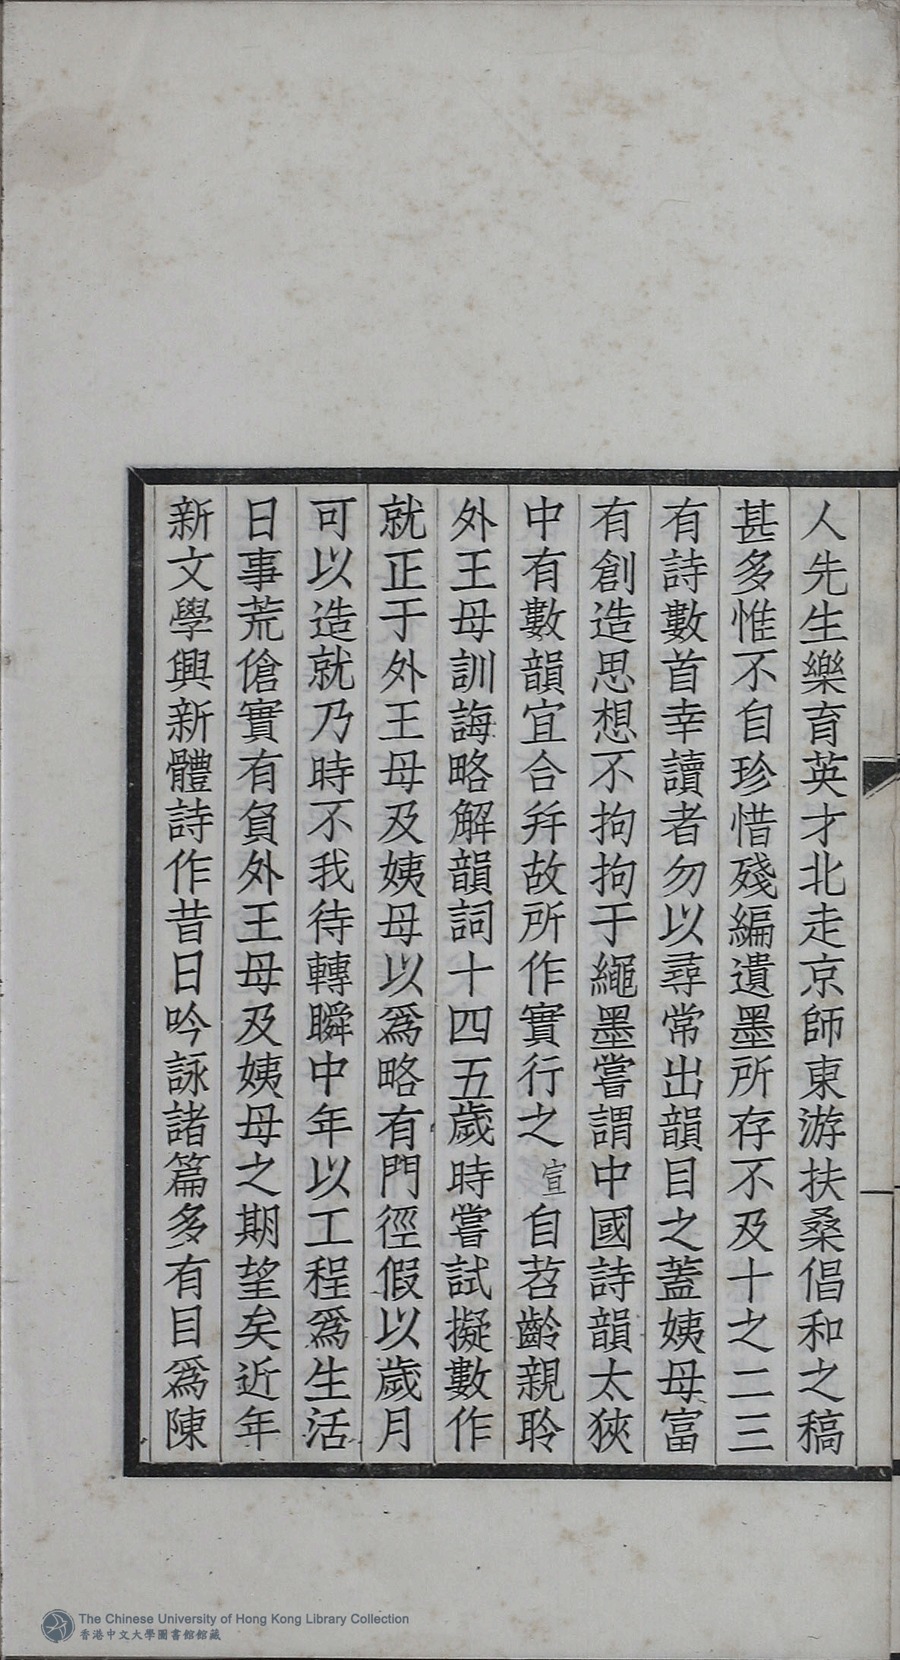 人先生樂育英才北走京師東游扶桑倡和之稿
甚多惟不自珍惜殘編遺墨所存不及十之二三
有詩數首幸讀者勿以尋常出韻目之蓋姨母富
有創造思想不拘拘于繩墨嘗謂中國詩韻太狹
中有數韻宜合幷故所作實行之宣自苕齡親聆
外王母訓誨略解韻詞十四五歲時嘗試擬數作
就正于外王母及姨母以爲略有門徑假以歲月
可以造就乃時不我待轉瞬中年以工程爲生活
日事荒傖實有負外王母及姨母之期望矣近年
新文學興新體詩作昔日吟詠諸篇多有目爲陳
The Chinese University of Hong Kong Library Collection
香港中文大學圖書館館藏